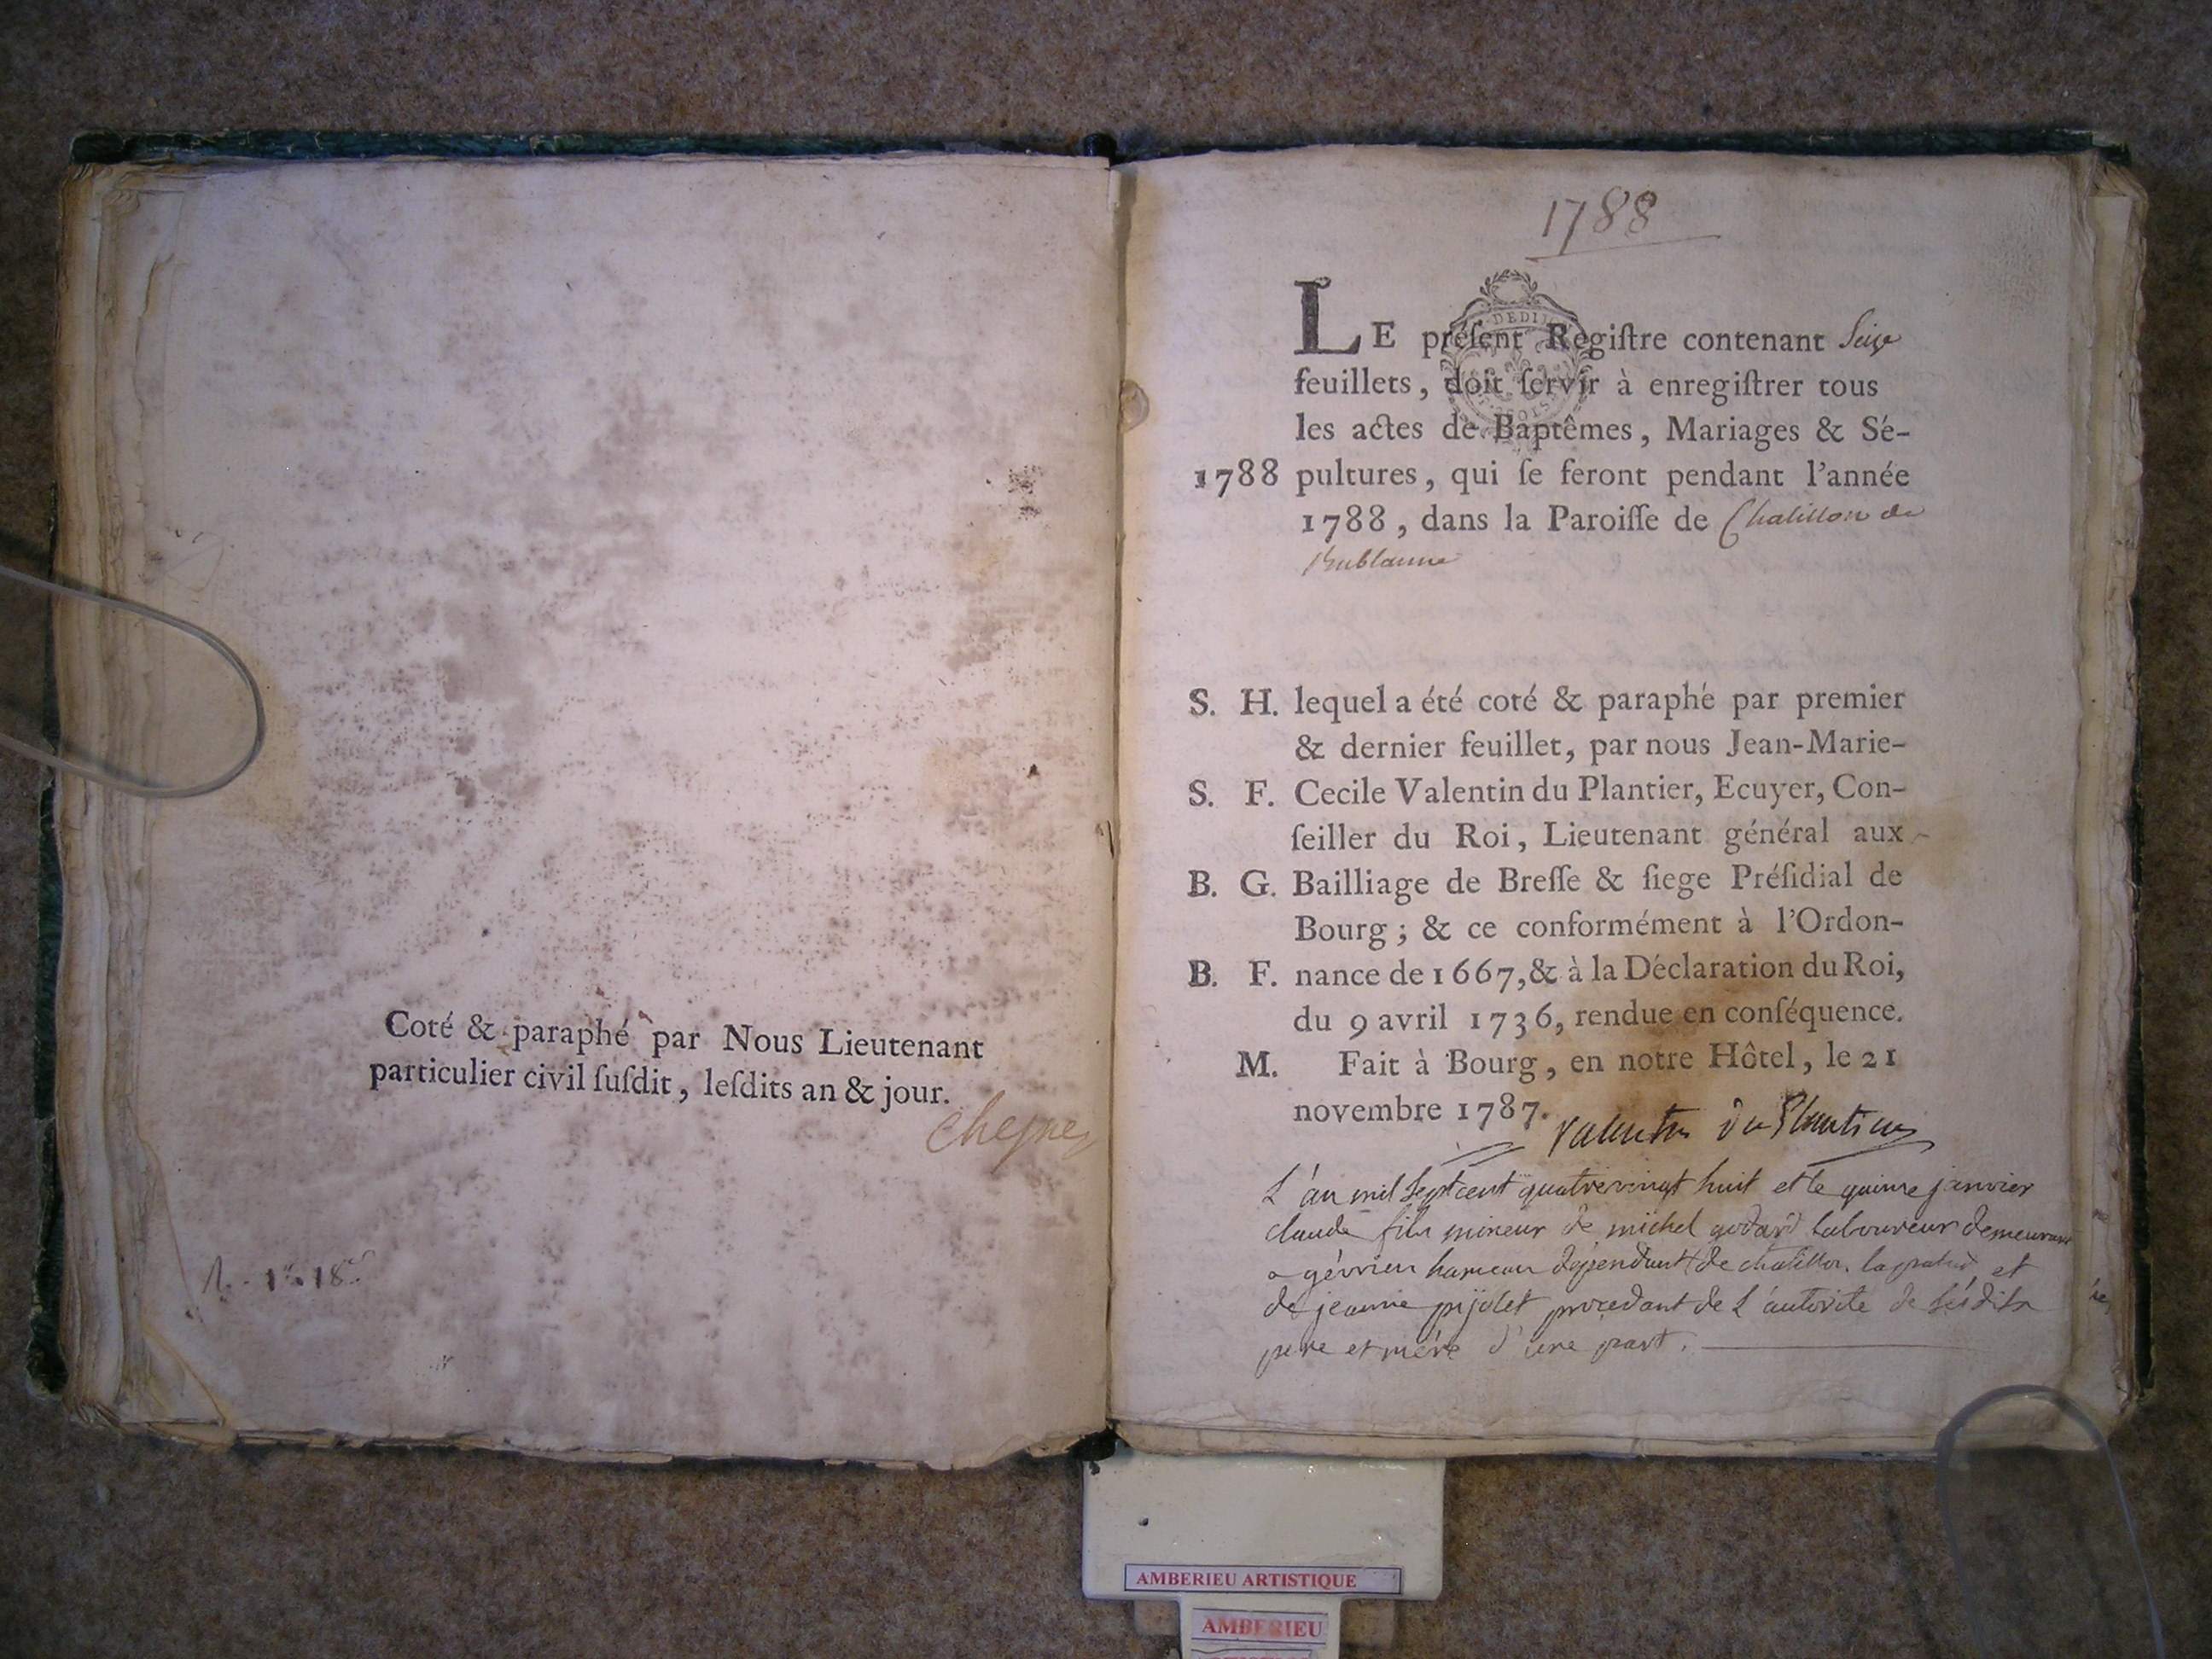 Coté & paraphé par Nous Lieutenant
particulier civil ſuſdit, leſdits an & jour.
1788
LE préſent Regiſtre contenant Seize
feuillets, doit ſervir à enregiſtrer tous
les actes de Baptêmes, Mariages & Sé-
1788 pultures, qui ſe feront pendant l'année
1788, dans la Paroiſſe de Chatillon de
S. H. lequel a été coté & paraphé par premier
& dernier feuillet, par nous Jean-Marie-
S. F. Cecile Valentin du Plantier, Ecuyer, Con-
ſeiller du Roi, Lieutenant général aux
B. G. Bailliage de Breſſe & ſiege Préſidial de
Bourg ; & ce conformément à l'Ordon-
B. F. nance de 1667, & à la Déclaration du Roi,
du 9 avril 1736, rendue en conſéquence.
M. Fait à Bourg, en notre Hôtel, le 21
novembre 1787. Valentin du Plantier
L'an mil sept cent quatrevingt huit et le quinze janvier
claude fils mineur de michel godard laboureur demeurant
a gévrieu hameau dépendant de chatillon lapalud et
de jeanne pijolet procedant de L'autorité de sésdits
pere et mére d'une part.
AMBERIEU ARTISTIQUE
AMBERIEU